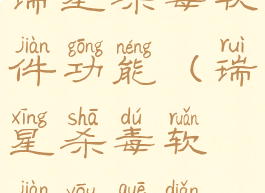 瑞星杀毒软
jiàn gōng néng ruì
件功能（瑞
xīng shā dú ruǎn
星杀毒软
jiàn yǒu quē diǎn